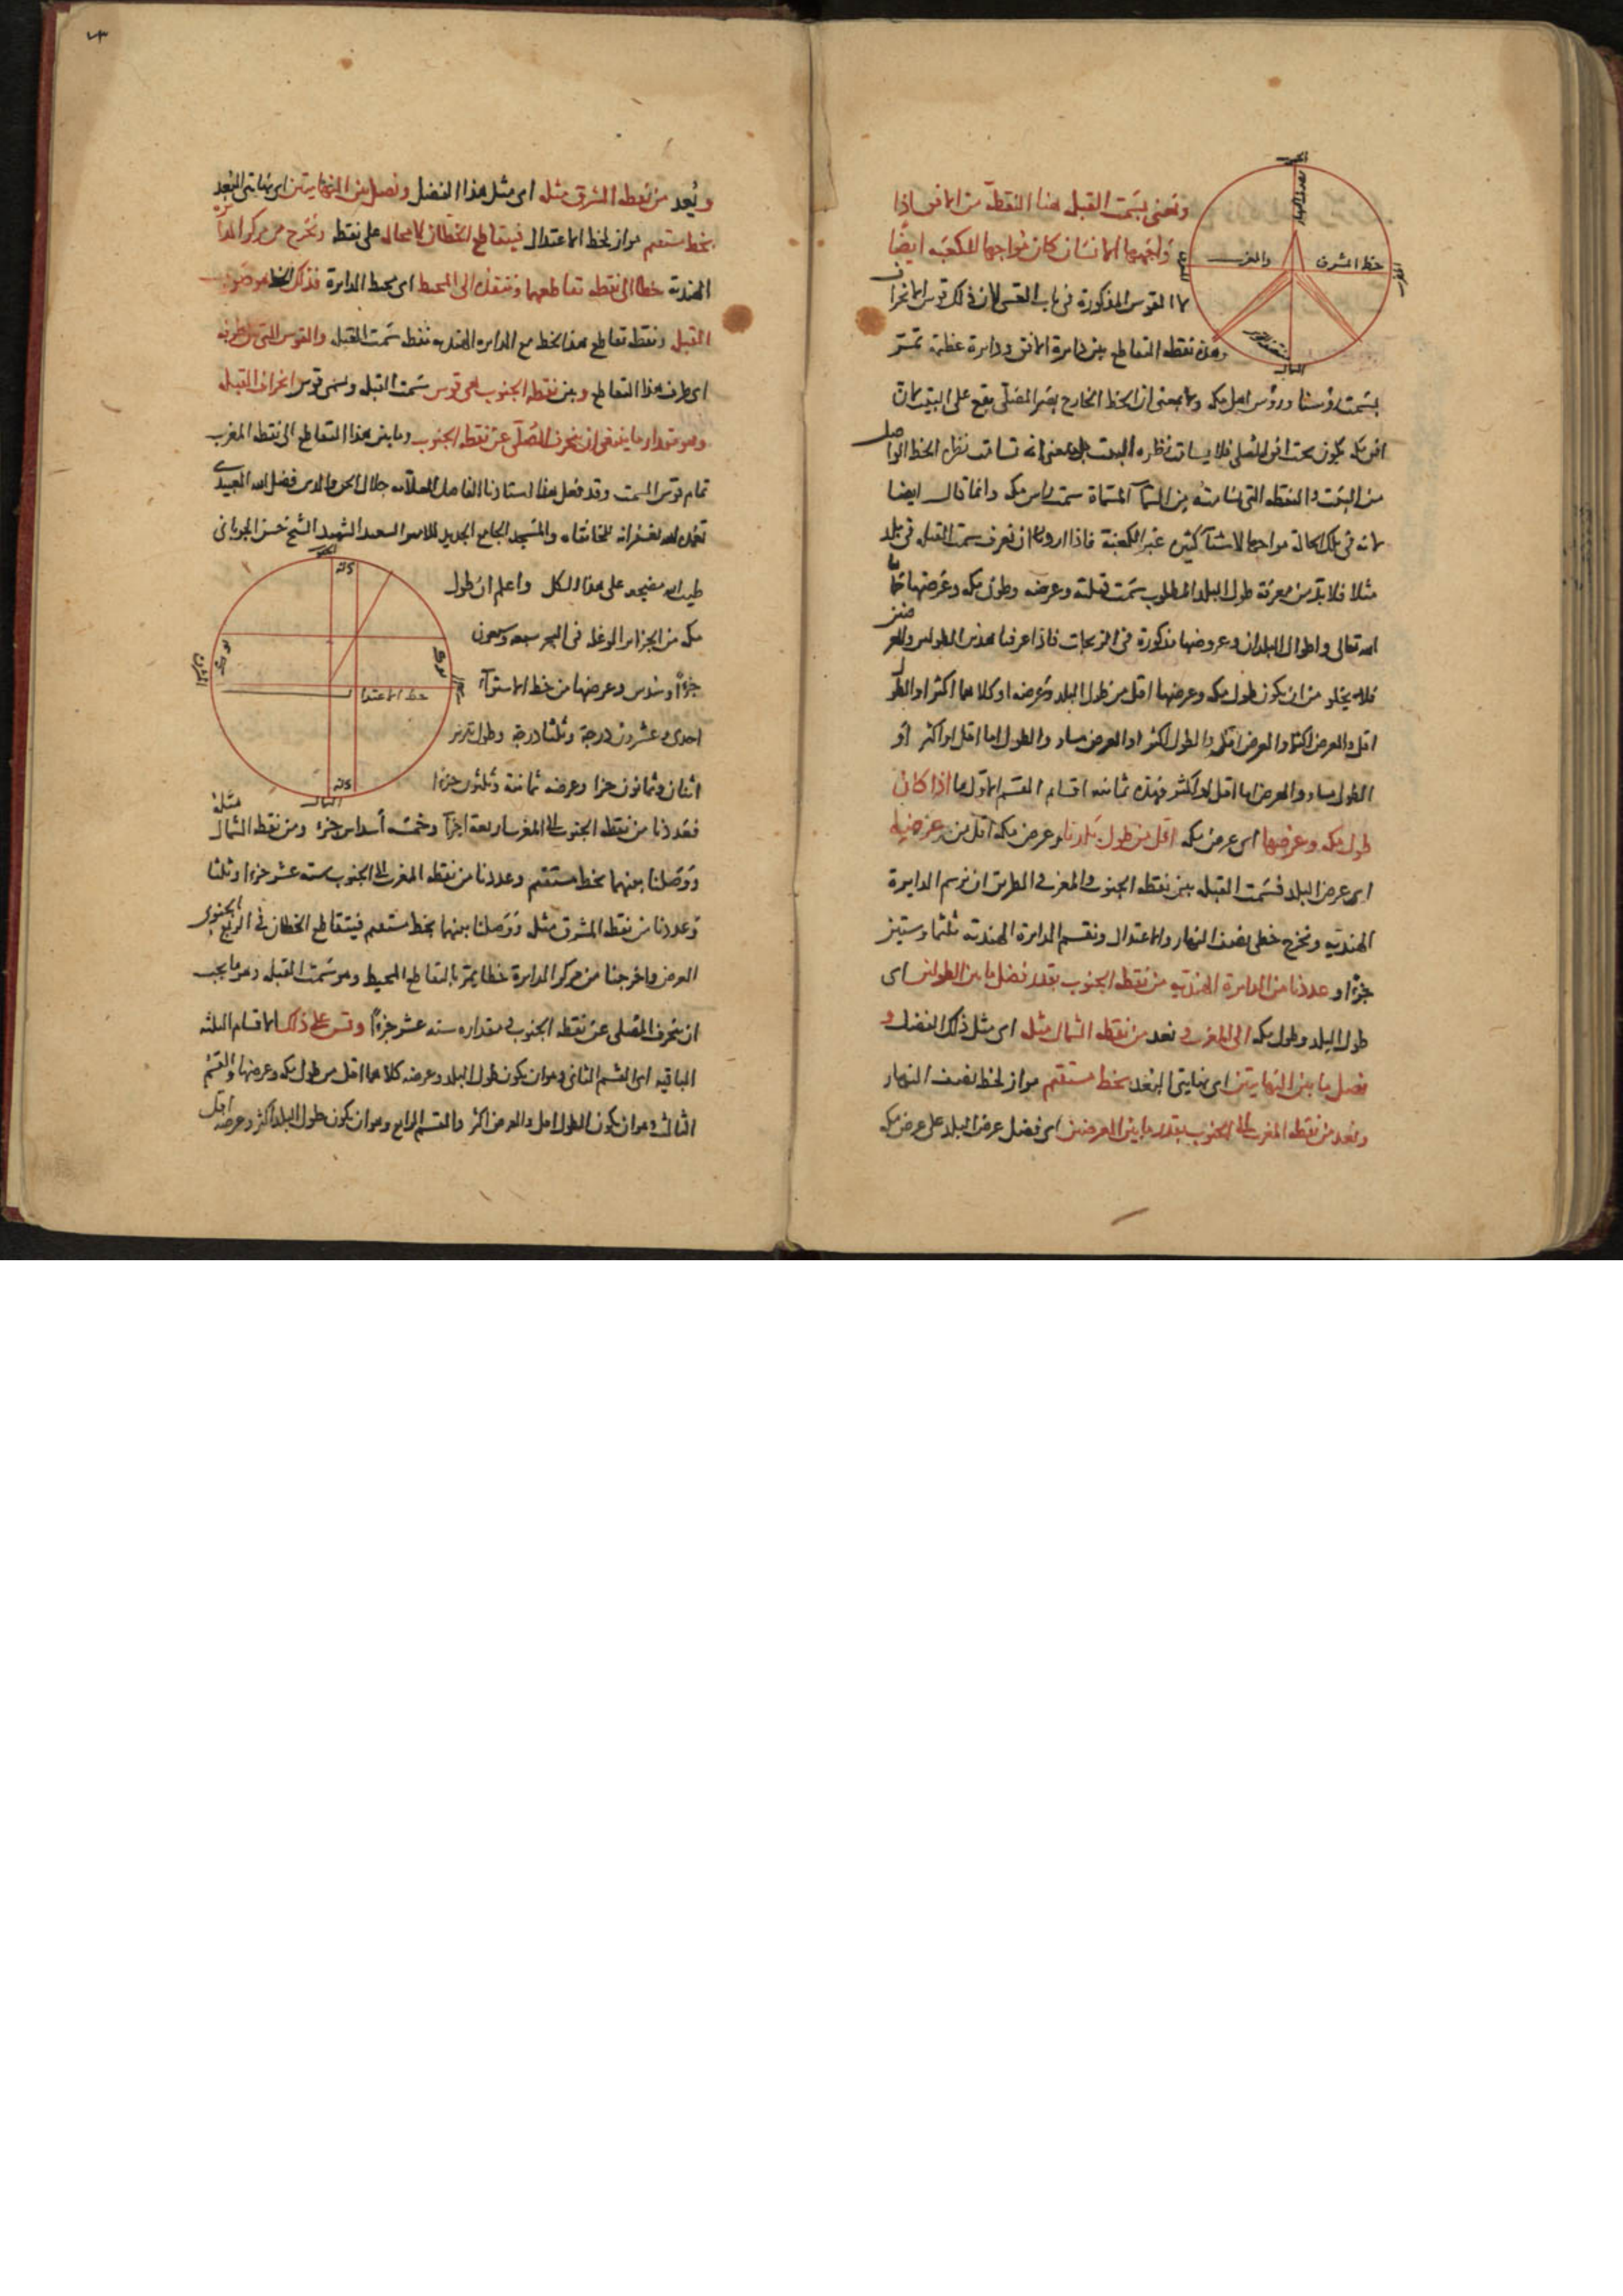 الجنوب
نصف النهار
خط المشرق
والمغرب
المغرب
المشرق
الشمال
ونعنى بسمت القبلة هنا النقطة من الافق اذا
واجهها الانسان كان مواجها للكعبة ايضا
لا القوس المذكورة فى باب القسى لان ذلك قوس الانحراف
وهذه نقطة التقاطع بين دايرة الافق ودايرة عظيمة تمر
بسمت رؤسنا ورؤس اهل مكه ولا بمعنى ان الخط الخارج بصر المصلى يقع على البيت لان
افق مكه يكون تحت افق المصلى فلا يسامت نظره البيت بل بمعنى انه تسامت نظره الخط الواصل
من البيت والنقطه التى تسامته من السمآ المسماة سمت راس مكه وانما قال ايضا
لانه فى تلك الحالة مواجها لاشيآ كثيرة غير الكعبة فاذا اردنا ان نعرف سمت القبله فى بلد
مثلا فلا بد من معرفة طول البلد المطلوب سمت قبلته وعرضه وطول مكه وعرضها حماها
الله تعالى واطوال البلدان وعروضها مذكورة فى الزيجات فاذا عرفنا هذين الطولين والعرضين
فلا يخلو من ان يكون طول مكه وعرضها اقل من طول البلد وعرضه او كلاهما اكثر او الطول
اقل والعرض اكثر او العرض اقل والطول اكثر او العرض مساو والطول اما اقل او اكثر او
الطول مساو والعرض اما اقل او اكثر فهذه ثمانيه اقسام القسم الاول ما اذا كان
طول مكه وعرضها اى عرض مكه اقل من طول بلدنا وعرض مكه اقل من عرضه
اى عرض البلد فسمت القبله بين نقطه الجنوب والمغرب والطريق ان نرسم الدايرة
الهندية ونخرج خطى نصف النهار والاعتدال ونقسم الدايرة الهندية ثلثماية وستين
جزءا و عددنا من الدايرة الهندية من نقطه الجنوب بقدر فضل ما بين الطولين اى
طول البلد وطول مكه الى المغرب و نعد من نقطه الشمال مثله اى مثل ذلك الفضل و
نصل ما بين النهايتين اى نهايتى البعد بخط مستقيم مواز لخط نصف النهار
ونعد من نقطه المغرب الى الجنوب بقدر ما بين العرضين اى فضل عرض البلد على عرض مكه
ونعد من نقطه المشرق مثله اى مثل هذا الفضل ونصل بين النهايتين اى نهايتى البعد
بخط مستقيم مواز لخط الاعتدال فيتقاطع الخطان لا محاله على نقطه ونخرج من مركز الدايرة
الهندية خطا الى نقطه تقاطعهما وننفذه الى المحيط اى محيط الدايرة فذلك الخط هو صوب
القبلة ونقطه تقاطع هذا الخط مع الدايره الهنديه نقطه سمت القبله والقوس التى من طرفه
اى طرف هذا التقاطع وبين نقطه الجنوب هى قوس سمت القبله وتسمى قوس انحراف القبله
وهو مقدار ما ينبغى ان ينحرف المصلى عن نقطه الجنوب وما بين هذا التقاطع الى نقطه المغرب
تمام قوس السمت وقد فعل هذا استادنا الفاضل العلامه جلال الحق والدين فضل الله العبيدى
تغمده الله بغفرانه للخانقاه والمسجد الجامع الجديد للامير السعيد الشهيد الشيخ حسن الجوبانى
طيب الله مضجعه على هذا الشكل واعلم ان طول
مكه من الجزاير الواغله فى البحر سبعه وسبعون
جزءا وسدس وعرضها من خط الاستوآء
احدى وعشرون درجة وثلثا درجة وطول تبريز
اثنان وثمانون جزا وعرضه ثمانية وثلثون جزءا
الجنوب
المغرب
خط الاعتدال
المشرق
الشمال
فعددنا من نقطه الجنوب الى المغرب اربعة اجزآ وخمسة أسداس جزء ومن نقطه الشمال مثله
ووصلنا بينهما بخط مستقيم وعددنا من نقطه المغرب الى الجنوب سته عشر جزءا وثلثا
وعددنا من نقطه المشرق مثله ووصلنا بينهما بخط مستقيم فيتقاطع الخطان فى الربع الجنوبى
الغربى واخرجنا من مركز الدايرة خطا يمر بالتقاطع المحيط وهو سمت القبله وهو ما يجب
ان ينحرف المصلى عن نقطه الجنوب و مقداره سته عشر جزءا وقس على ذلك الاقسام الثلثه
الباقيه اى القسم الثانى وهو ان يكون طول البلد وعرضه كلاهما اقل من طول مكه وعرضها والقسم
الثالث وهو ان يكون الطول اقل والعرض اكثر والقسم الرابع وهو ان يكون طول البلد اكثر وعرضه اقل